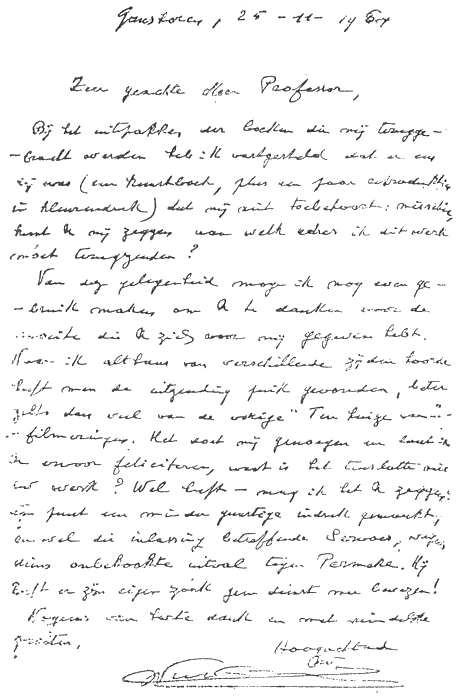 Ganshoren, 25-11-19
Zeer geachte Heer Professor,
Bij het uitpakken der boeken die mij terugge-
-bracht werden heb ik vastgesteld dat er een
bij was (een kunstboek, plus een paar
in kleurendruk) dat mij niet toebehoort: misschien
kunt U mij zeggen aan welk adres ik dit werk
moet terugzenden?
Van deze gelegenheid moge ik nog even ge-
-bruik maken om U te danken voor de
moeite die U zich voor mij gegeven hebt.
Naar ik althans van verschillende zijden hoorde
heeft men de uitzending fijn gevonden, beter
zelfs dan veel van de vorige "Ten huize van"-
-filmeringen. Het doet mij genoegen en laat ik
U ervoor feliciteren, want is het tenslotte niet
uw werk? Wel heeft - mag ik het U zeggen:
een punt een minder gunstige indruk gemaakt,
en wel die inlassing betreffende Servaes, wegens
diens onbehoorlijke uitval tegen Permeke. Hij
heeft er zijn eigen zaak geen dienst mee bewezen!
Nogmaals van harte dank en met vriendelijke
groeten,
Hoogachtend